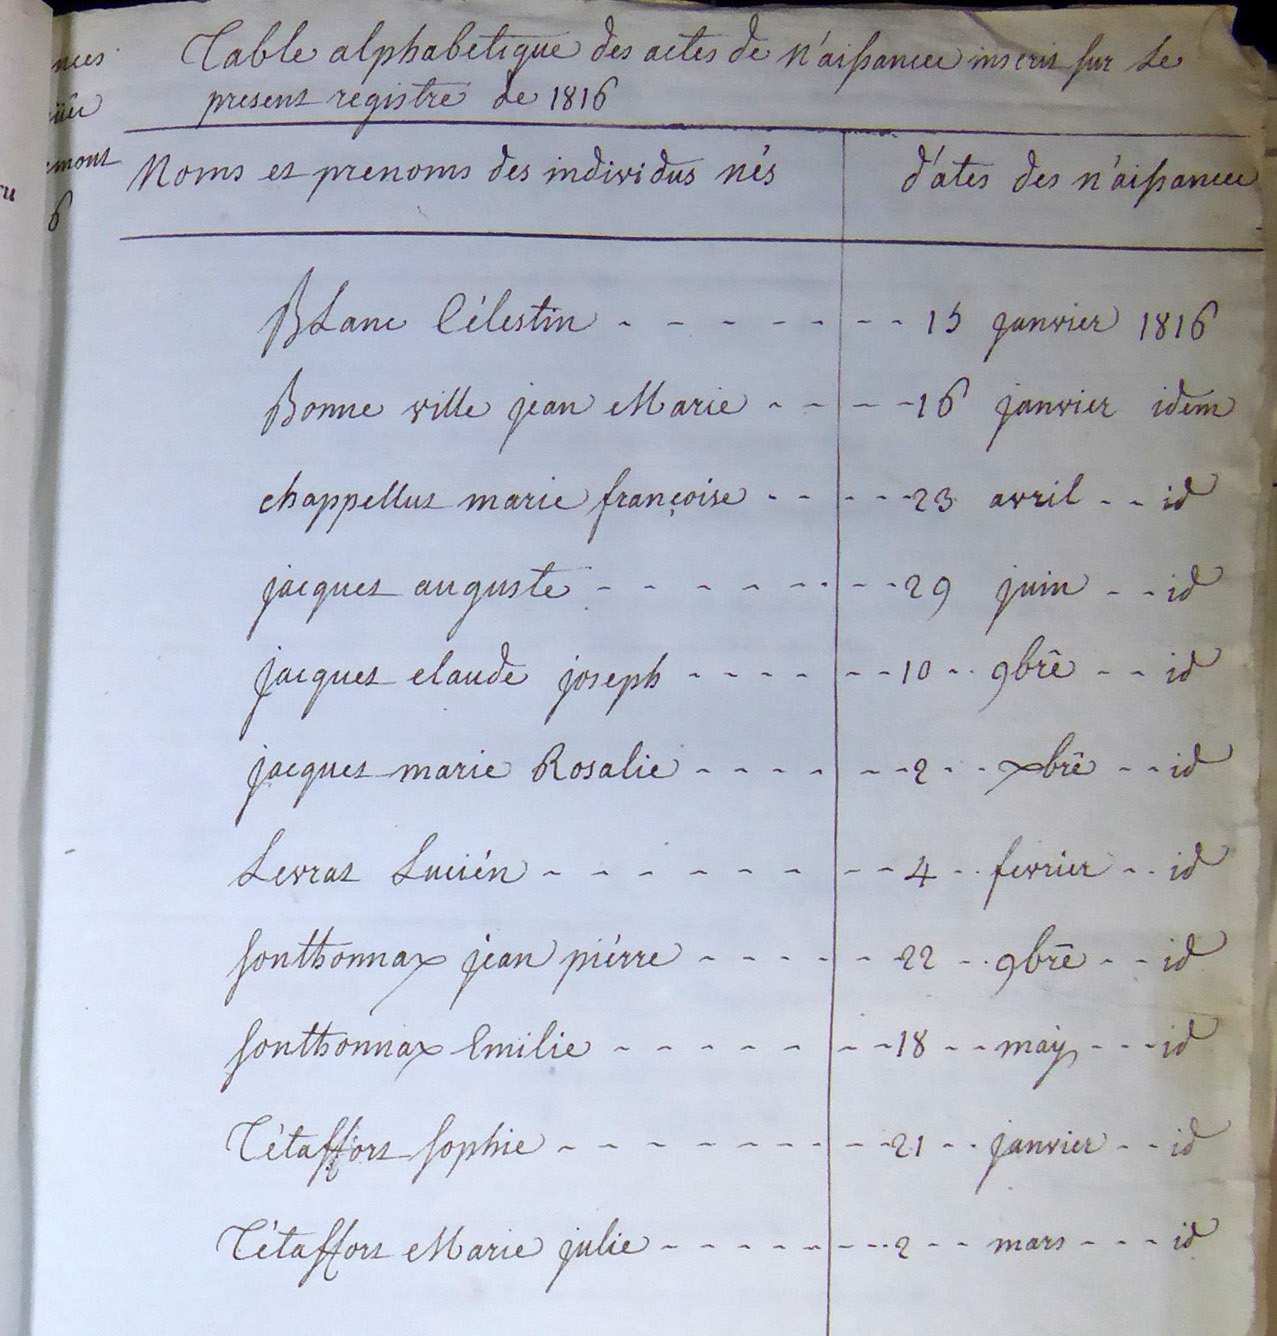 Table alphabetique des actes de n'aissance inscrit sur Le
present registre de 1816
Noms et prenoms des individus nés
d'ates des n'aissance
BLanc Célestin - - - - - - - - 15 janvier 1816
Bonne ville jean Marie - - - - 16 janvier idem
chappellut marie françoise - - - - - 23 avril - - id
jacquet auguste - - - - - - - - - 29 juin - - id
jacquet claude joseph - - - - - - 10 - - 9brē - - id
jacquet marie Rosalie - - - - - - 2 - - xbrē - - id
Levrat Lucién - - - - - - - - - 4 - - fevrier - - id
sonthonnax jean piérre - - - - - - 22 - - 9brē - - id
sonthonnax Emilie - - - - - - - - 18 - - may - - - id
Tétaffort sophie - - - - - - - - - 21 - - janvier - - id
Tétaffort Marie julie - - - - - - - - - 2 - - mars - - - id